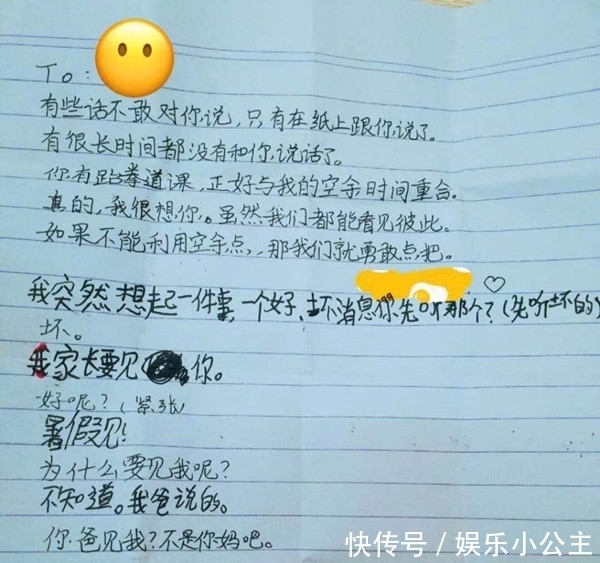 To:
有些话不敢对你说,只有在纸上跟你说了。
有很长时间都没有和你说话了。
你有跆拳道课,正好与我的空余时间重合。
真的,我很想你。虽然我们都能看见彼此。
如果不能利用空余点,那我们就勇敢点把。
我突然想起一件事,一个好、坏消息你先听那个?(先听坏的)
坏。
我家长要见你。
好呢?(紧张)
暑假见!
为什么要见我呢?
不知道。我爸说的。
你爸见我?不是你妈吧。
快传号 / 娱乐小公主